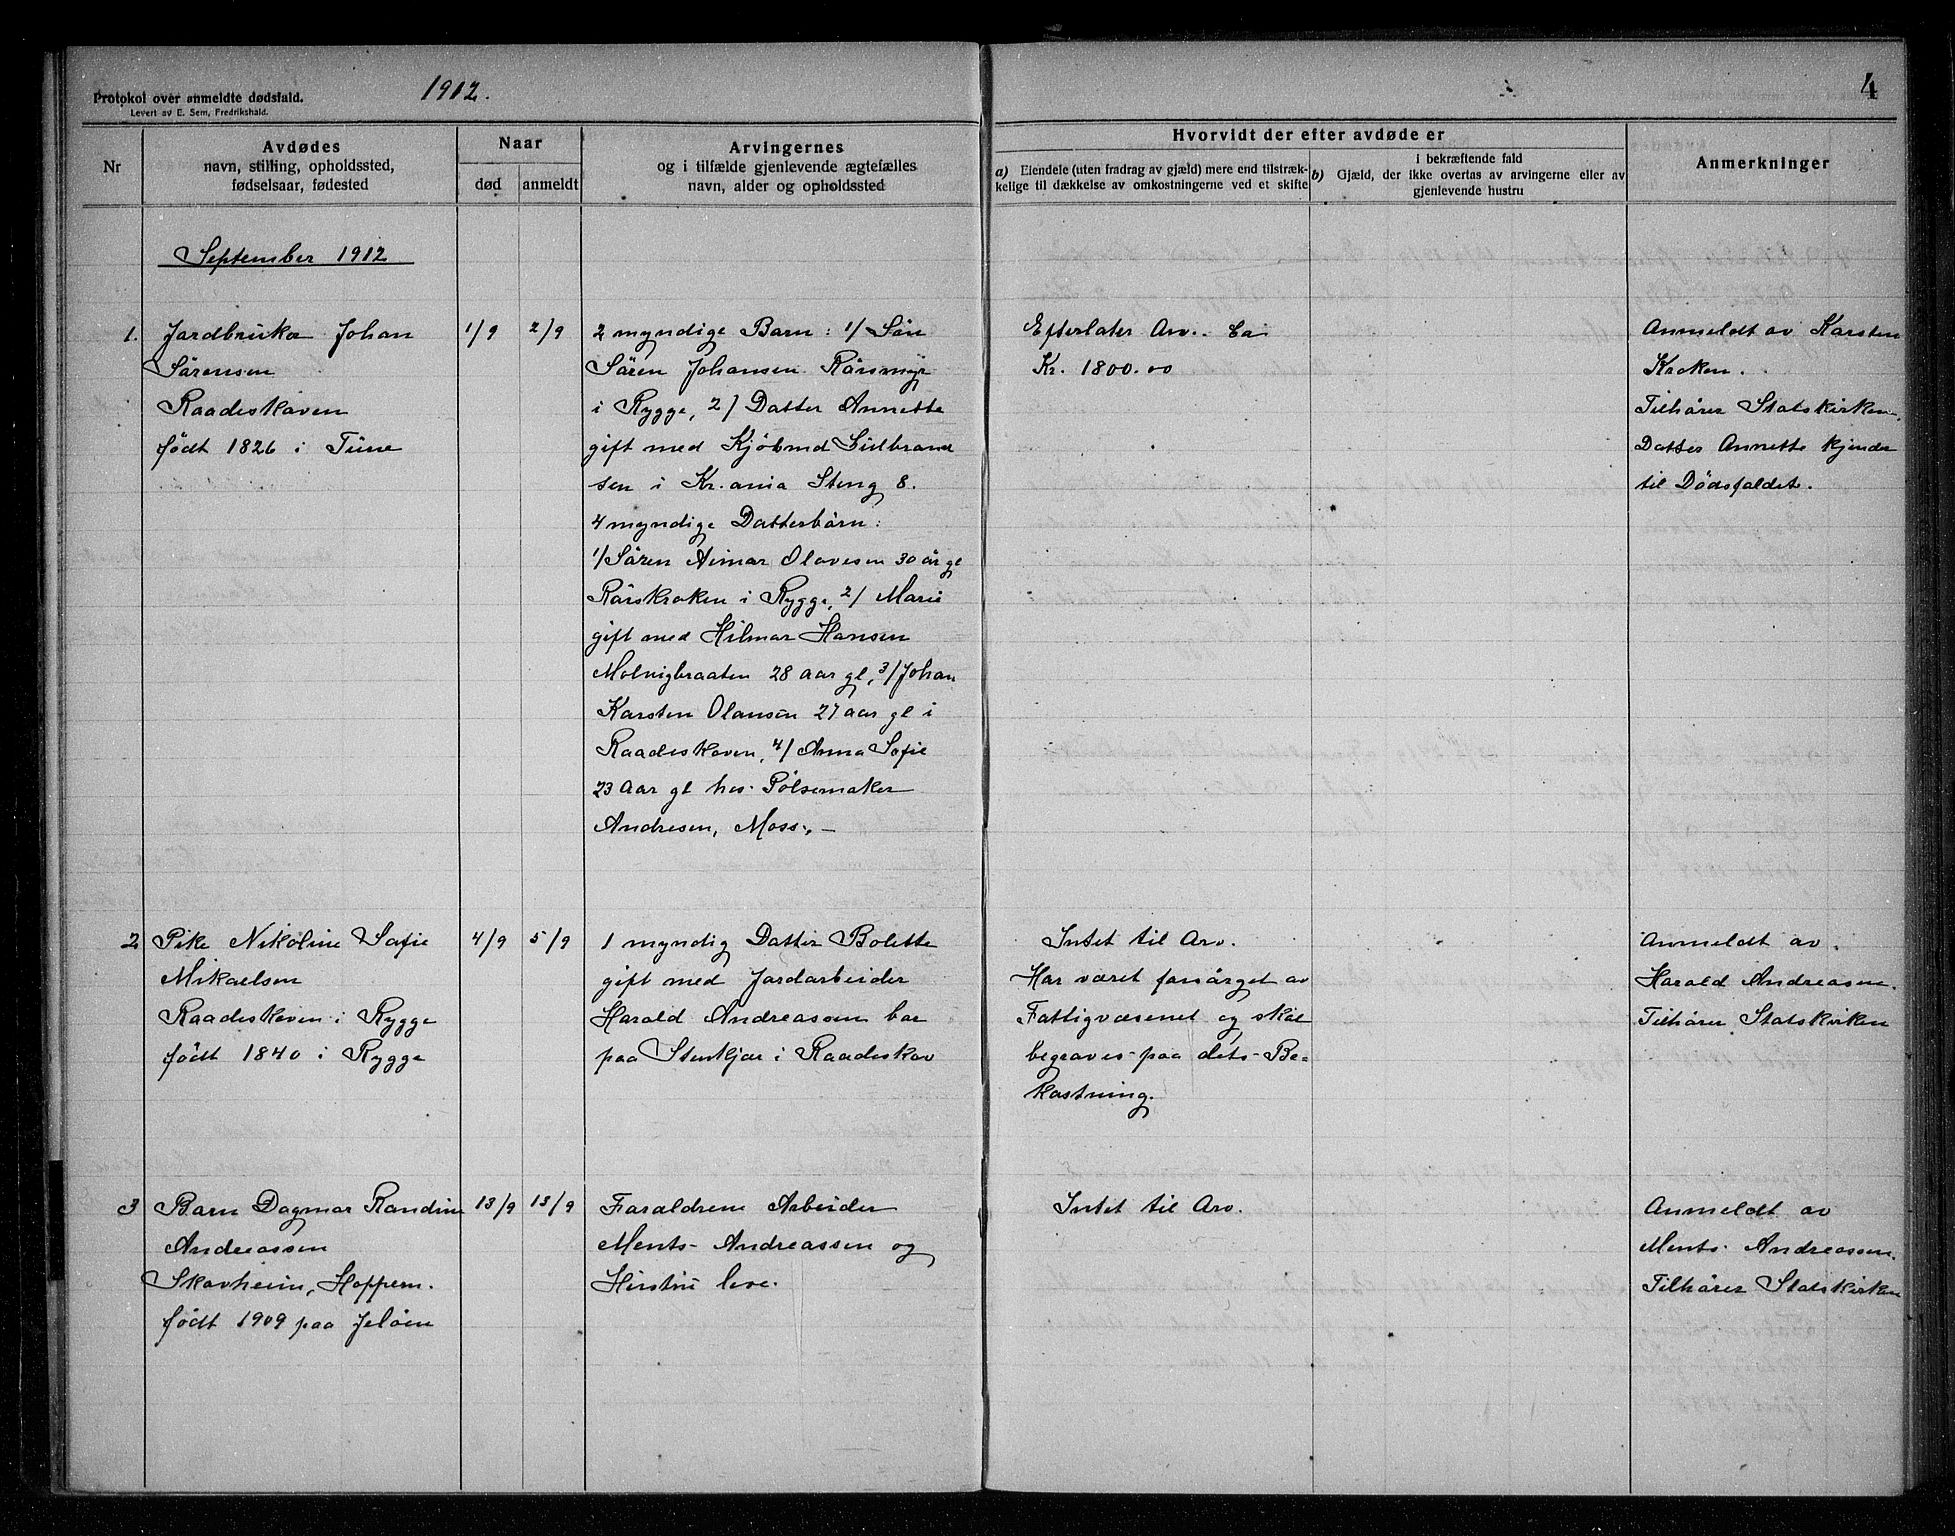 Protokol over anmeldte dødsfald.
Levert av E. Sem, Fredrikshald.
1912.
4
Nr
Avdødes
navn, stilling, opholdssted,
fødselsaar, fødested
Naar
død
anmeldt
Arvingernes
og i tilfælde gjenlevende ægtefælles
navn, alder og opholdssted
Hvorvidt der efter avdøde er
a) Eiendele (uten fradrag av gjæld) mere end tilstræk-
kelige til dækkelse av omkostningerne ved et skifte
i bekræftende fald
b) Gjæld, der ikke overtas av arvingerne eller av
gjenlevende hustru
Anmerkninger
September 1912
1. Jordbruker Johan
Sörensen
Raadeskoven
født 1826 i Tune
1/9
2/9
2 myndige Barn: 1/ Sön
Sören Johansen Rörsmyr
i Rygge, 2/ Datter Annette
gift med Kjöbmd Gulbrand
sen i Kr.ania Steng 8.
4 myndige Datterbörn:
1/ Sören Aimar Olavesen 30 år gl
Rörskroken i Rygge, 2/ Marie
gift med Hilmar Hansen
Molvigbraaten 28 aar gl, 3/ Johan
Karsten Olausen 27 aar gl i
Raadeskoven, 4/ Anna Sofie
23 aar gl hos Pölsemaker
Andresen, Moss. –
Efterlater Arv. Ca
Kr. 1800.00
Anmeldt av Karsten
Kroken.
Tilhörer Statskirken.
Datter Annette kjender
til Dödsfaldet.
2 Pike Nikoline Sofie
Mikaelsen
Raadeskoven i Rygge
født 1840 i Rygge
4/9
5/9
1 myndig Datter Bolette
gift med Jordarbeider
Harald Andreassen bor
paa Stenkjær i Raadeskov
Intet til Arv.
Har været forsörget av
Fattigvæsenet og skal
begraves paa dets Be=
kostning.
Anmeldt av
Harald Andreasen.
Tilhörer Statskirken
3 Barn Dagmar Randine
Andreassen
Skovheim, Hoppern.
født 1909 paa Jelöen
13/9
13/9
Foraldrene Arbeider
Ments Andreassen og
Hustru leve.
Intet til Arv.
Anmeldt av
Ments Andreassen.
Tilhörer Statskirken